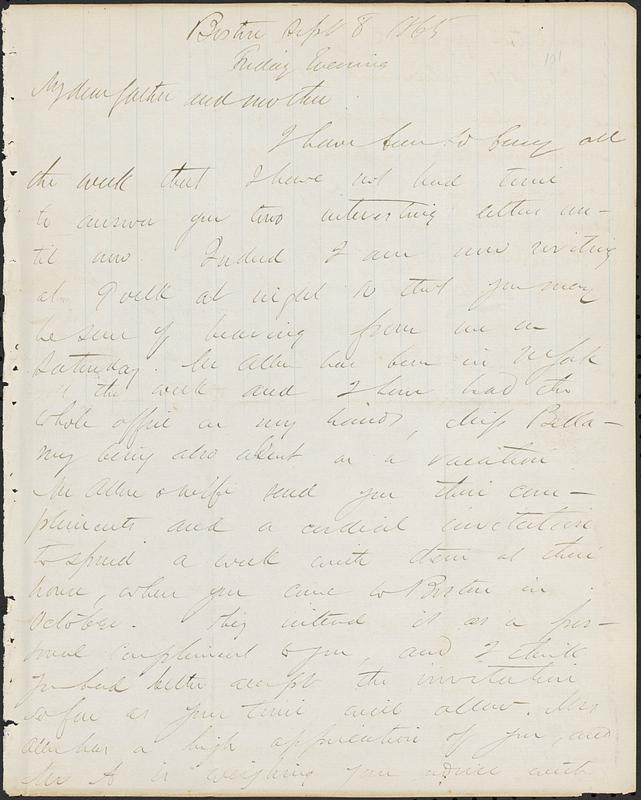 Boston Sept 8 1865
Friday Evening
101
My dear father and mother
I have been so busy all
the week that I have not had time
to answer your two interesting letters un-
til now. Indeed I am now writing
at 9 oclk at night so that you may
be sure of hearing from me on
Saturday. Mr Allen has been in N York
all the week and I have had the
whole office on my hands, Miss Bella-
my being also absent on a vacation
Mr Allen & wife send you their com-
pliments and a cordial invitation
to spend a week with them at their
house, when you come to Boston in
October. They intend it as a per-
sonal compliment to you, and I think
you had better accept the invitation
so far as your time will allow. Mrs
Allen has a high appreciation of you and
Mr A is weighing your advice with